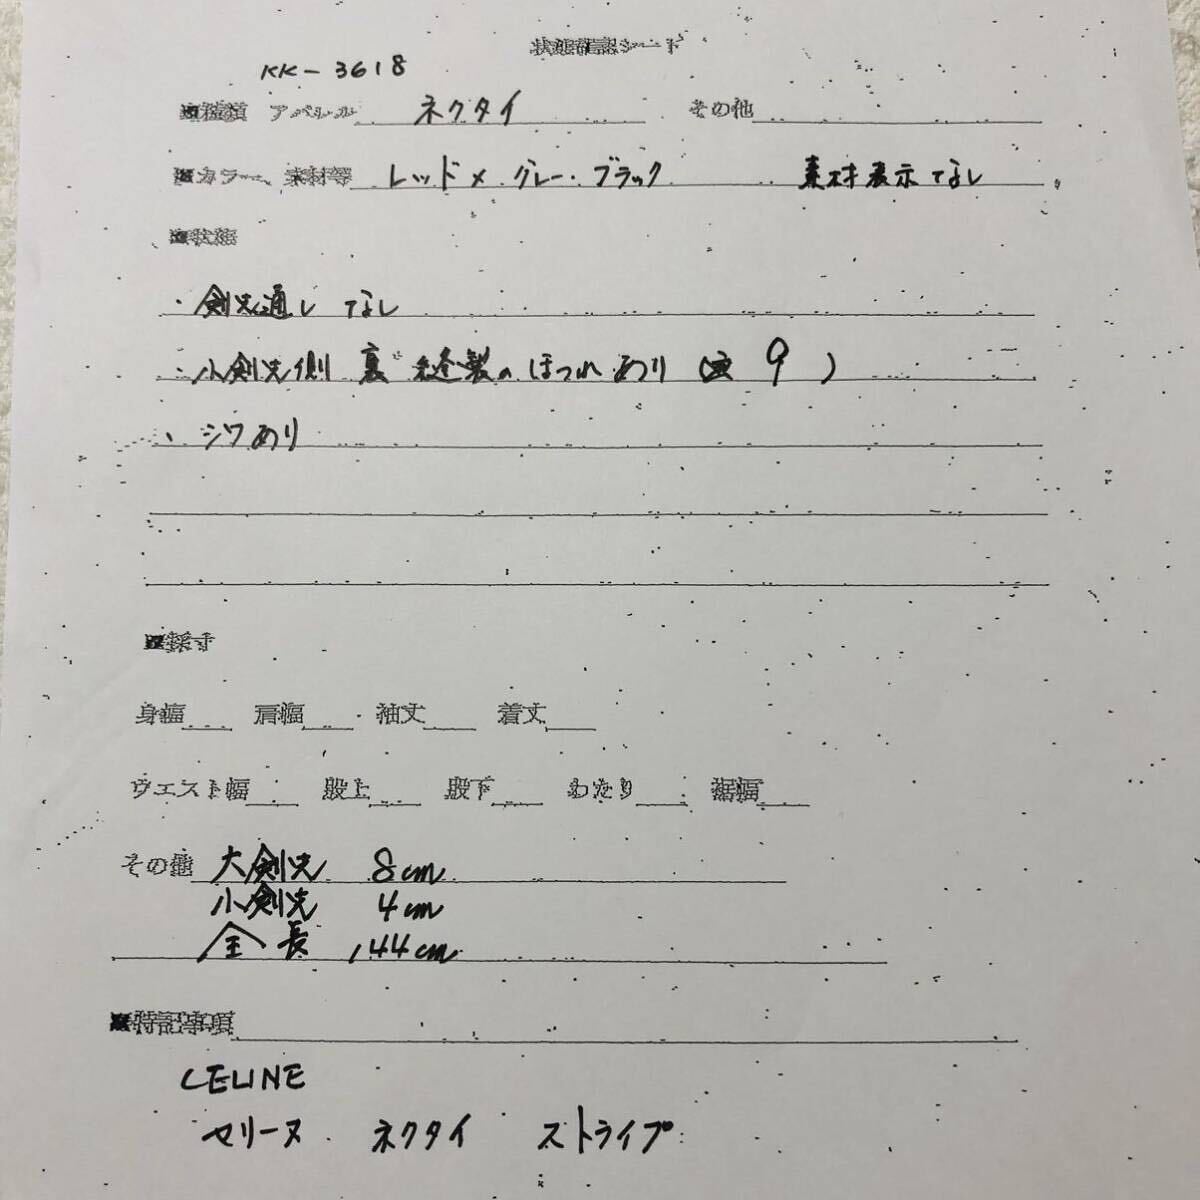 状態確認シート
KK-3618
■種類 アパレル ネクタイ その他
■カラー、素材等 レッド×グレー・ブラック 素材表示なし
■状態
・剣先通し なし
・小剣先側 裏 縫製のほつれあり ( 9 )
・シワあり
■採寸
身幅 肩幅 袖丈 着丈
ウエスト幅 股上 股下 わたり 裾幅
その他 大剣先 8cm
小剣先 4cm
全長 144cm
■特記事項
CELINE
セリーヌ ネクタイ ストライプ